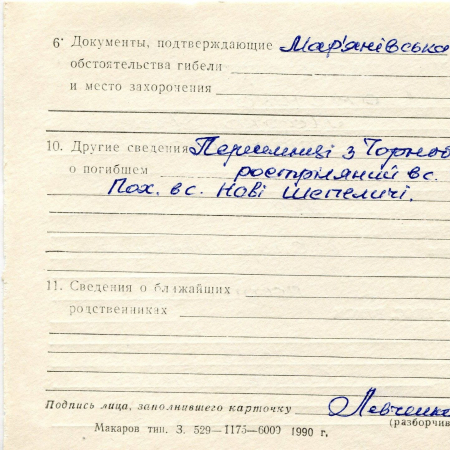 6· Документы, подтверждающие Мар'янівська
обстоятельства гибели
и место захоронения
10. Другие сведения з Чорноб
о погибшем розстріляний в с.
Пох. в с. Нові Шепеличі.
11. Сведения о ближайших
родственниках
Подпись лица, заполнившего карточку Левченко
(разборчив
Макаров тип. З. 529—1175—6000 1990 г.